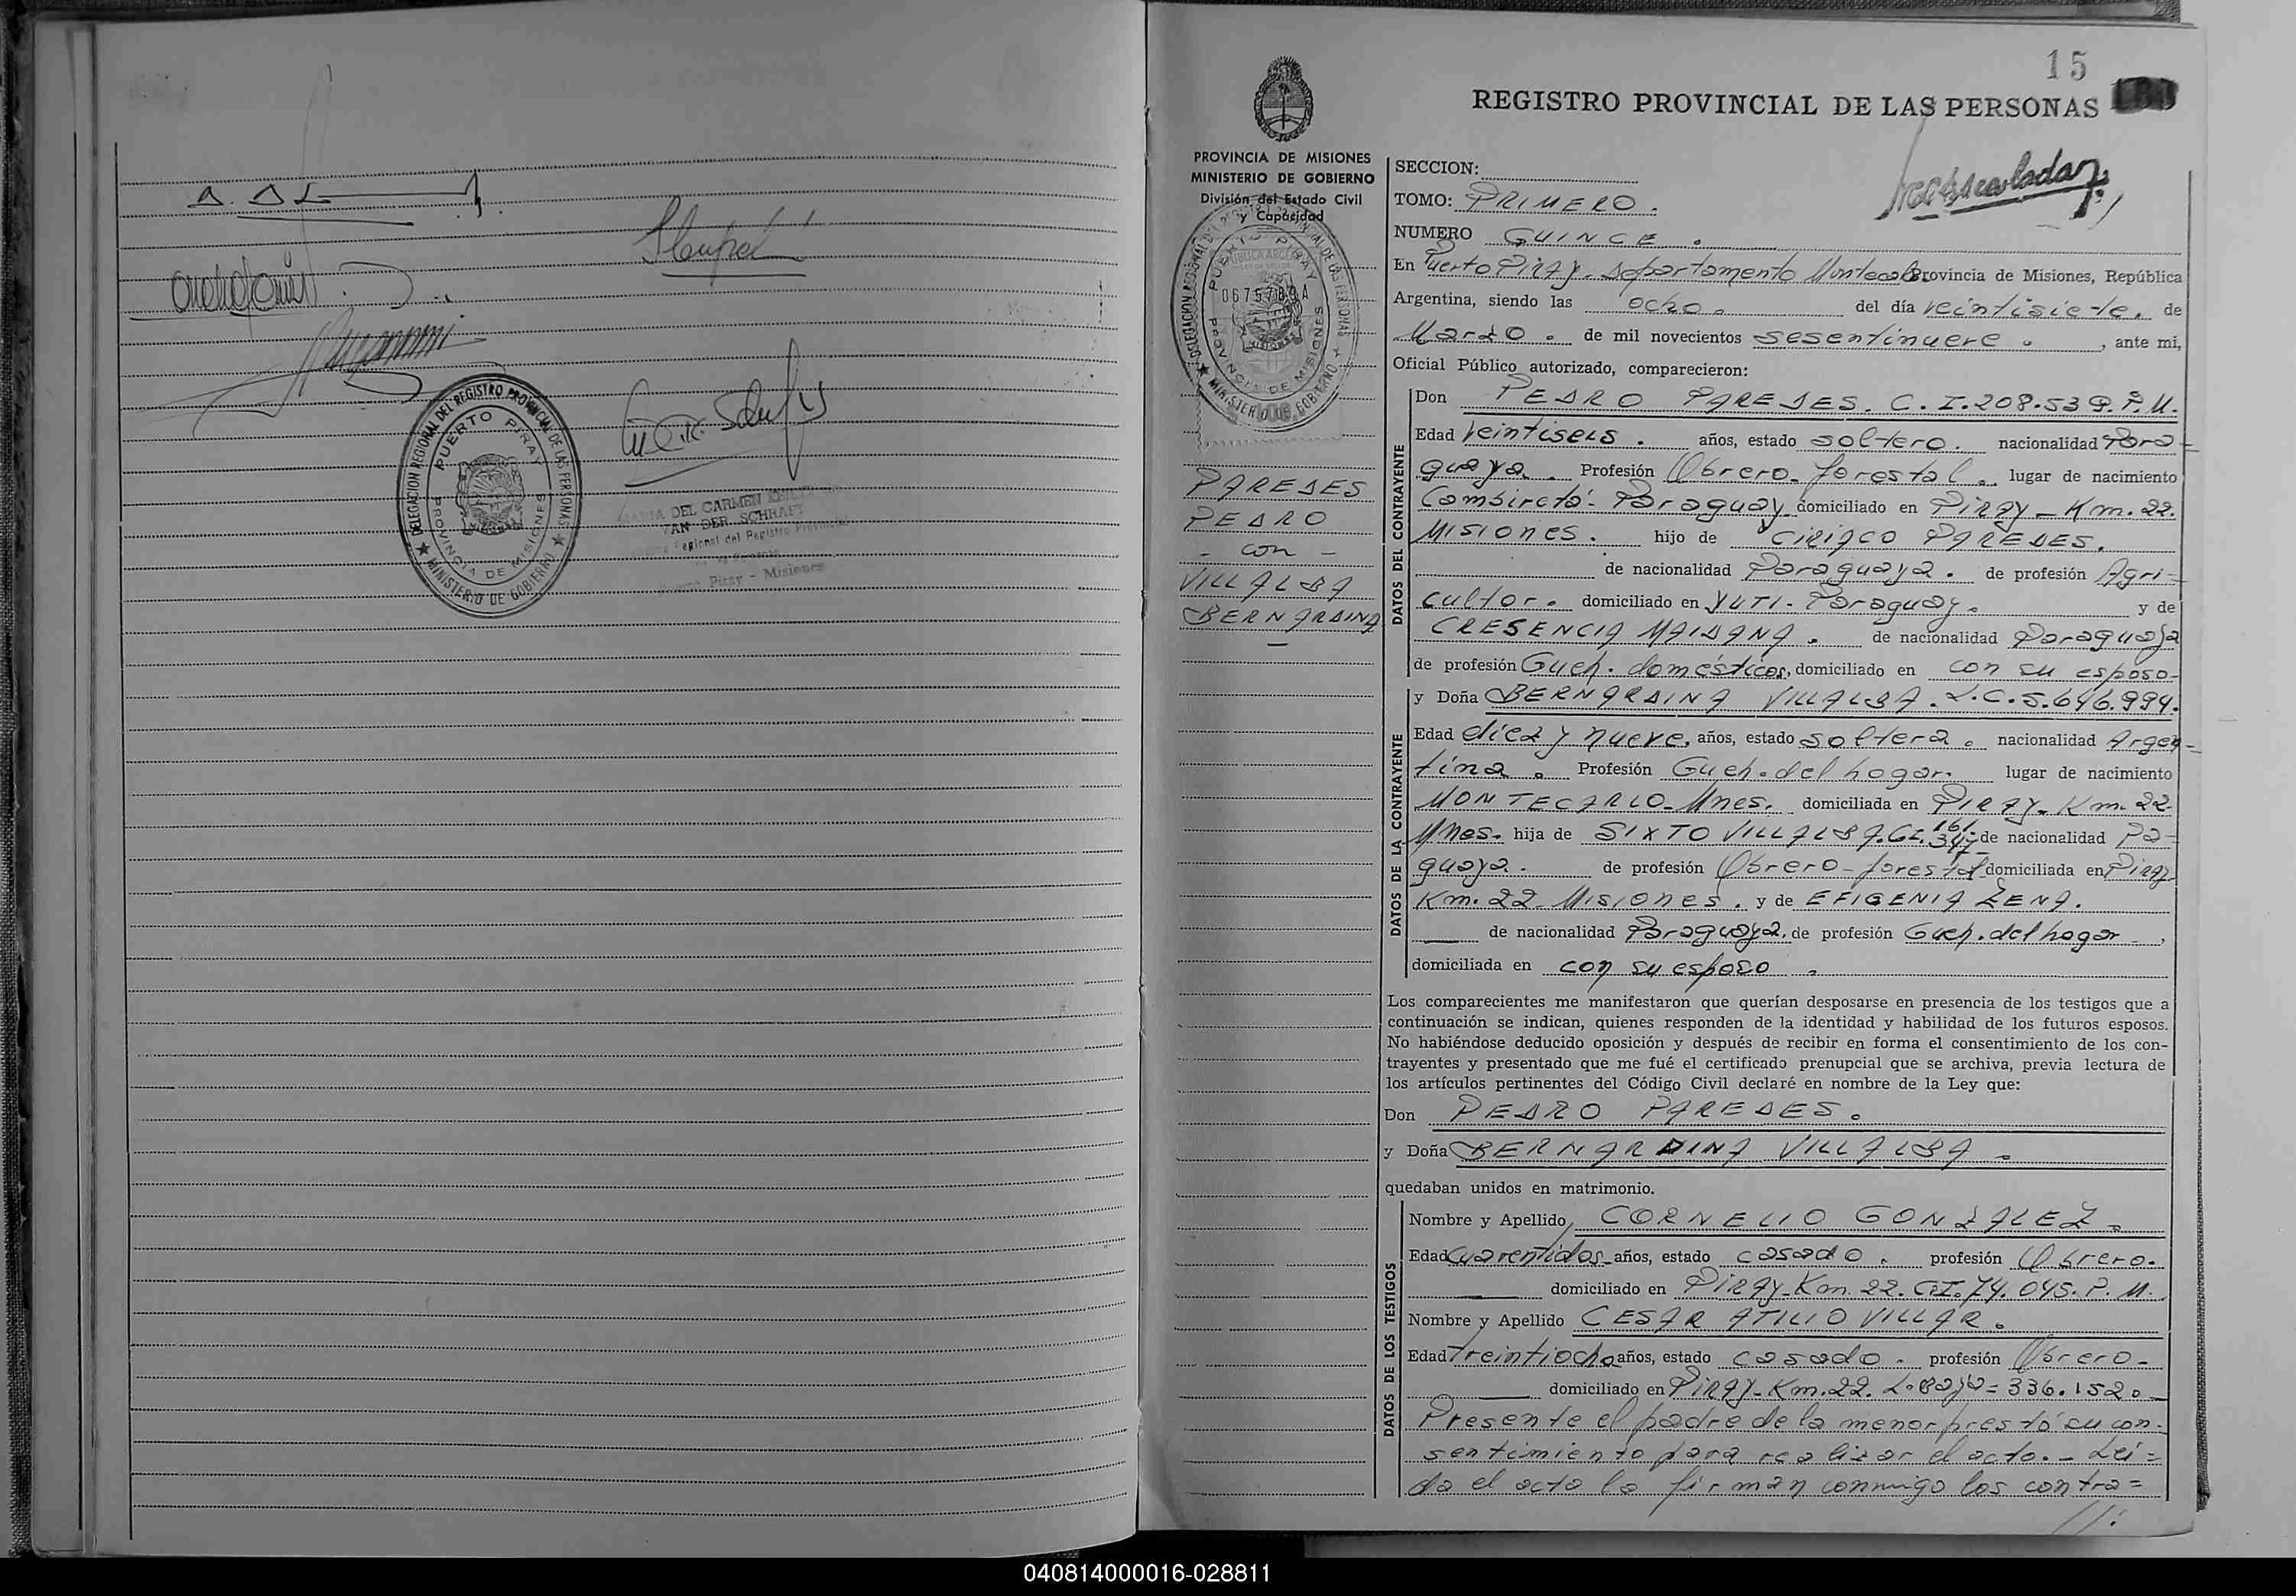 DELEGACION REGIONAL DEL REGISTRO PROVINCIAL DE LAS PERSONAS
PUERTO PIRAY
PROVINCIA DE MISIONES
★ MINISTERIO DE GOBIERNO ★
DEL CARMEN
VAN DER SCHRAFT
Regional del Registro Provincial
Piray - Misiones
15
REGISTRO PROVINCIAL DE LAS PERSONAS
PROVINCIA DE MISIONES
MINISTERIO DE GOBIERNO
División del Estado Civil
y Capacidad
DELEGACION REGIONAL DEL REGISTRO PROVINCIAL DE LAS PERSONAS
PUERTO PIRAY
PROVINCIA DE MISIONES
★ MINISTERIO DE GOBIERNO ★
PAREDES
PEDRO
- con -
VILLALBA
BERNARDINA
SECCION:
TOMO: PRIMERO.
NUMERO QUINCE.
En Puerto Piray - Departamento Montecarlo Provincia de Misiones, República
Argentina, siendo las ocho. del día veintisiete. de
Marzo. de mil novecientos sesentinueve. , ante mi,
Oficial Público autorizado, comparecieron:
DATOS DEL CONTRAYENTE
Don PEDRO PAREDES. C.I. 208.539. P.M.
Edad Veintiseis. años, estado soltero. nacionalidad Para=
guaya. Profesión Obrero-forestal. lugar de nacimiento
Cambiretá- Paraguay domiciliado en Piray - Km. 22.
Misiones. hijo de CIRIACO PAREDES.
de nacionalidad Paraguaya. de profesión Agri=
cultor. domiciliado en YUTI- Paraguay. y de
CRESENCIA MAIDANA. de nacionalidad Paraguaya
de profesión Queh. domésticos, domiciliado en con su esposo-
DATOS DE LA CONTRAYENTE
y Doña BERNARDINA VILLALBA. L.C. 5.646.994.
Edad diez y nueve, años, estado soltera. nacionalidad Argen-
tina. Profesión Queh. del hogar. lugar de nacimiento
MONTECARLO- Mnes. domiciliada en Piray- Km. 22-
Mnes. hija de SIXTO VILLALBA. C.I. 161.347 de nacionalidad Pa=
guaya. de profesión Obrero-forestal domiciliada en Piray
Km. 22- Misiones. y de EFIGENIA ZENA.
de nacionalidad Paraguaya. de profesión Queh. del hogar - ,
domiciliada en con su esposo.
Los comparecientes me manifestaron que querían desposarse en presencia de los testigos que a
continuación se indican, quienes responden de la identidad y habilidad de los futuros esposos.
No habiéndose deducido oposición y después de recibir en forma el consentimiento de los con-
trayentes y presentado que me fué el certificado prenupcial que se archiva, previa lectura de
los artículos pertinentes del Código Civil declaré en nombre de la Ley que:
Don PEDRO PAREDES.
y Doña BERNARDINA VILLALBA.
quedaban unidos en matrimonio.
DATOS DE LOS TESTIGOS
Nombre y Apellido CORNELIO GONZALEZ.
Edad Cuarentidos años, estado casado. profesión Obrero.
domiciliado en Piray- Km. 22. C.I. 74.045. P.M.
Nombre y Apellido CESAR ATILIO VILLAR.
Edad treintiocho años, estado casado. profesión Obrero-
domiciliado en Piray- Km. 22.
Presente el padre de la menor prestó su con-
sentimiento para realizar el acto.- Leí=
da el acta la firman conmigo los contra=
//.
040814000016-028811